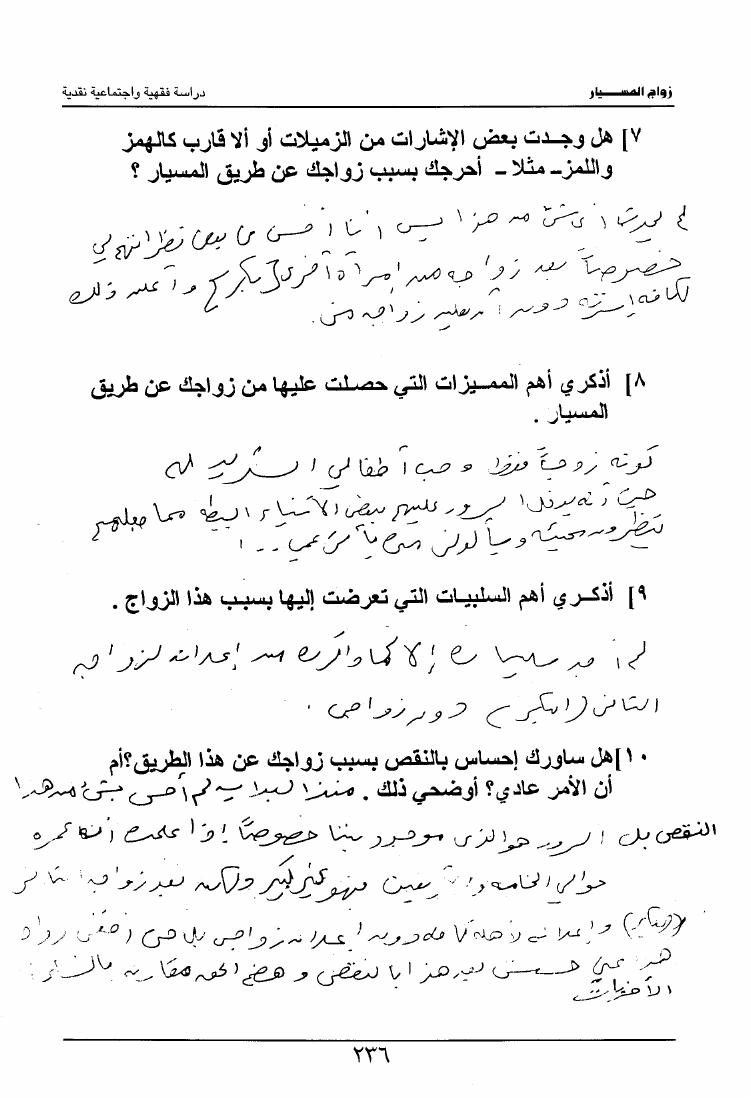 زواج المسيار
دراسة فقهية واجتماعية نقدية
٧] هل وجدت بعض الإشارات من الزميلات أو ألا قارب كالهمز
واللمز- مثلا - أحرجك بسبب زواجك عن طريق المسيار ؟
لم يحدث أي شئ من هذا ليس أنا أحس من بعض نظراتهم لي
خصوصاً بعد زواجه من إمرأة أخرى (بكر) وأعلن ذلك
لكافة دون أن يعلن زواجه مني.
٨] أذكري أهم المميزات التي حصلت عليها من زواجك عن طريق
المسيار .
كونه زوجاً فقط وحب أطفالي الشديد له
حيث أنه يدخل السرور عليهم ببعض الأشياء البسيطة مما جعلهم
ينتظرون مجيئه ويسألونني
٩] أذكري أهم السلبيات التي تعرضت إليها بسبب هذا الزواج .
لم أجد سلبيات إلا كما ذكرت من إعلانه لزواجه
الثاني (البكر) دون زواجي .
١٠] هل ساورك إحساس بالنقص بسبب زواجك عن هذا الطريق؟أم
أن الأمر عادي؟ أوضحي ذلك . منذ البداية لم أحس بشئ من هذا
النقص بل السرور هو الذي موجود بيننا خصوصاً إذا علمت أن عمره
حوالي الخامسة والأربعين فهو غير كبير ولكن بعد زواجه الثاني
(البكر) وإعلانه لأهله كافة دون إعلان زواجي بل حتى أخفى زواجه
هذا عني حسسني بعد هذا بالنقص وهضم الحق مقارنة بالنساء
الأخريات
٢٣٦